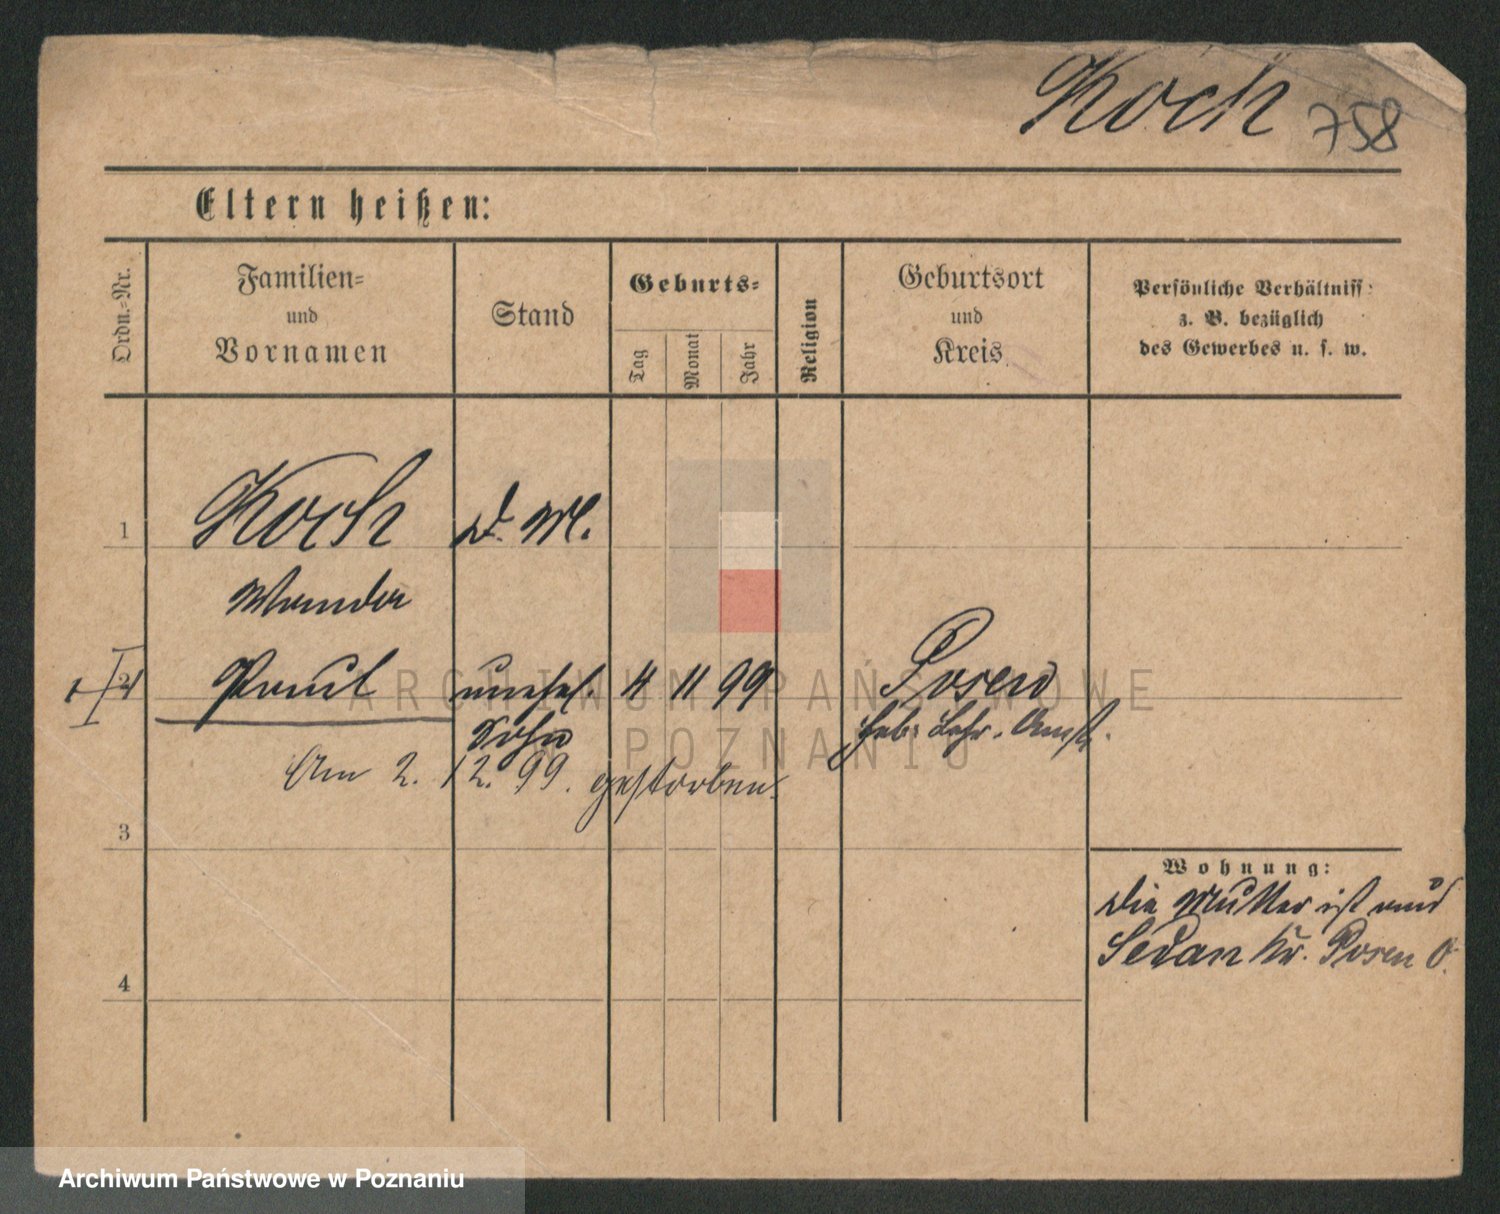 Koch 758
Eltern heißen:
Ordn.-Nr.
Familien-
und
Vornamen
Stand
Geburts-
Tag
Monat
Jahr
Religion
Geburtsort
und
Kreis
Persönliche Verhältniss
z. B. bezüglich
des Gewerbes u. s. w.
1 Koch d. M.
Wanda
2 Paul unehel. 4 11 99 Posen
Sohn Heb: Lehr. Anst.
Am 2. 12. 99. gestorben.
3
Wohnung:
Die Mutter ist aus
Sedan Kr. Posen O.
4
ARCHIWUM PAŃSTWOWE
W POZNANIU
Archiwum Państwowe w Poznaniu